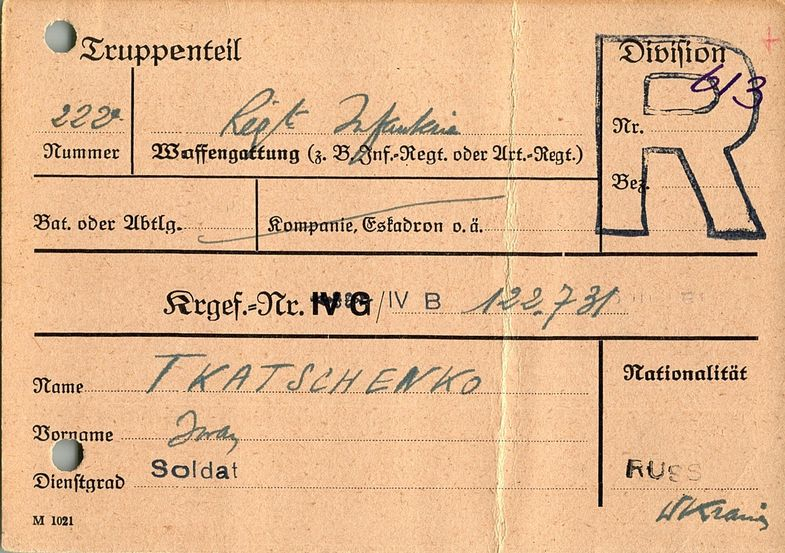 Truppenteil
Division
R
613
222
Regt. Infanterie
Nummer
Waffengattung (z. B. Inf.-Regt. oder Art.-Regt.)
Nr.
Bez.
Bat. oder Abtlg.
Kompanie, Eskadron o. ä.
Krgef.-Nr. IV G / IV B 122.731
Name TKATSCHENKO
Nationalität
Vorname Iwan
Dienstgrad Soldat
RUSS
M 1021